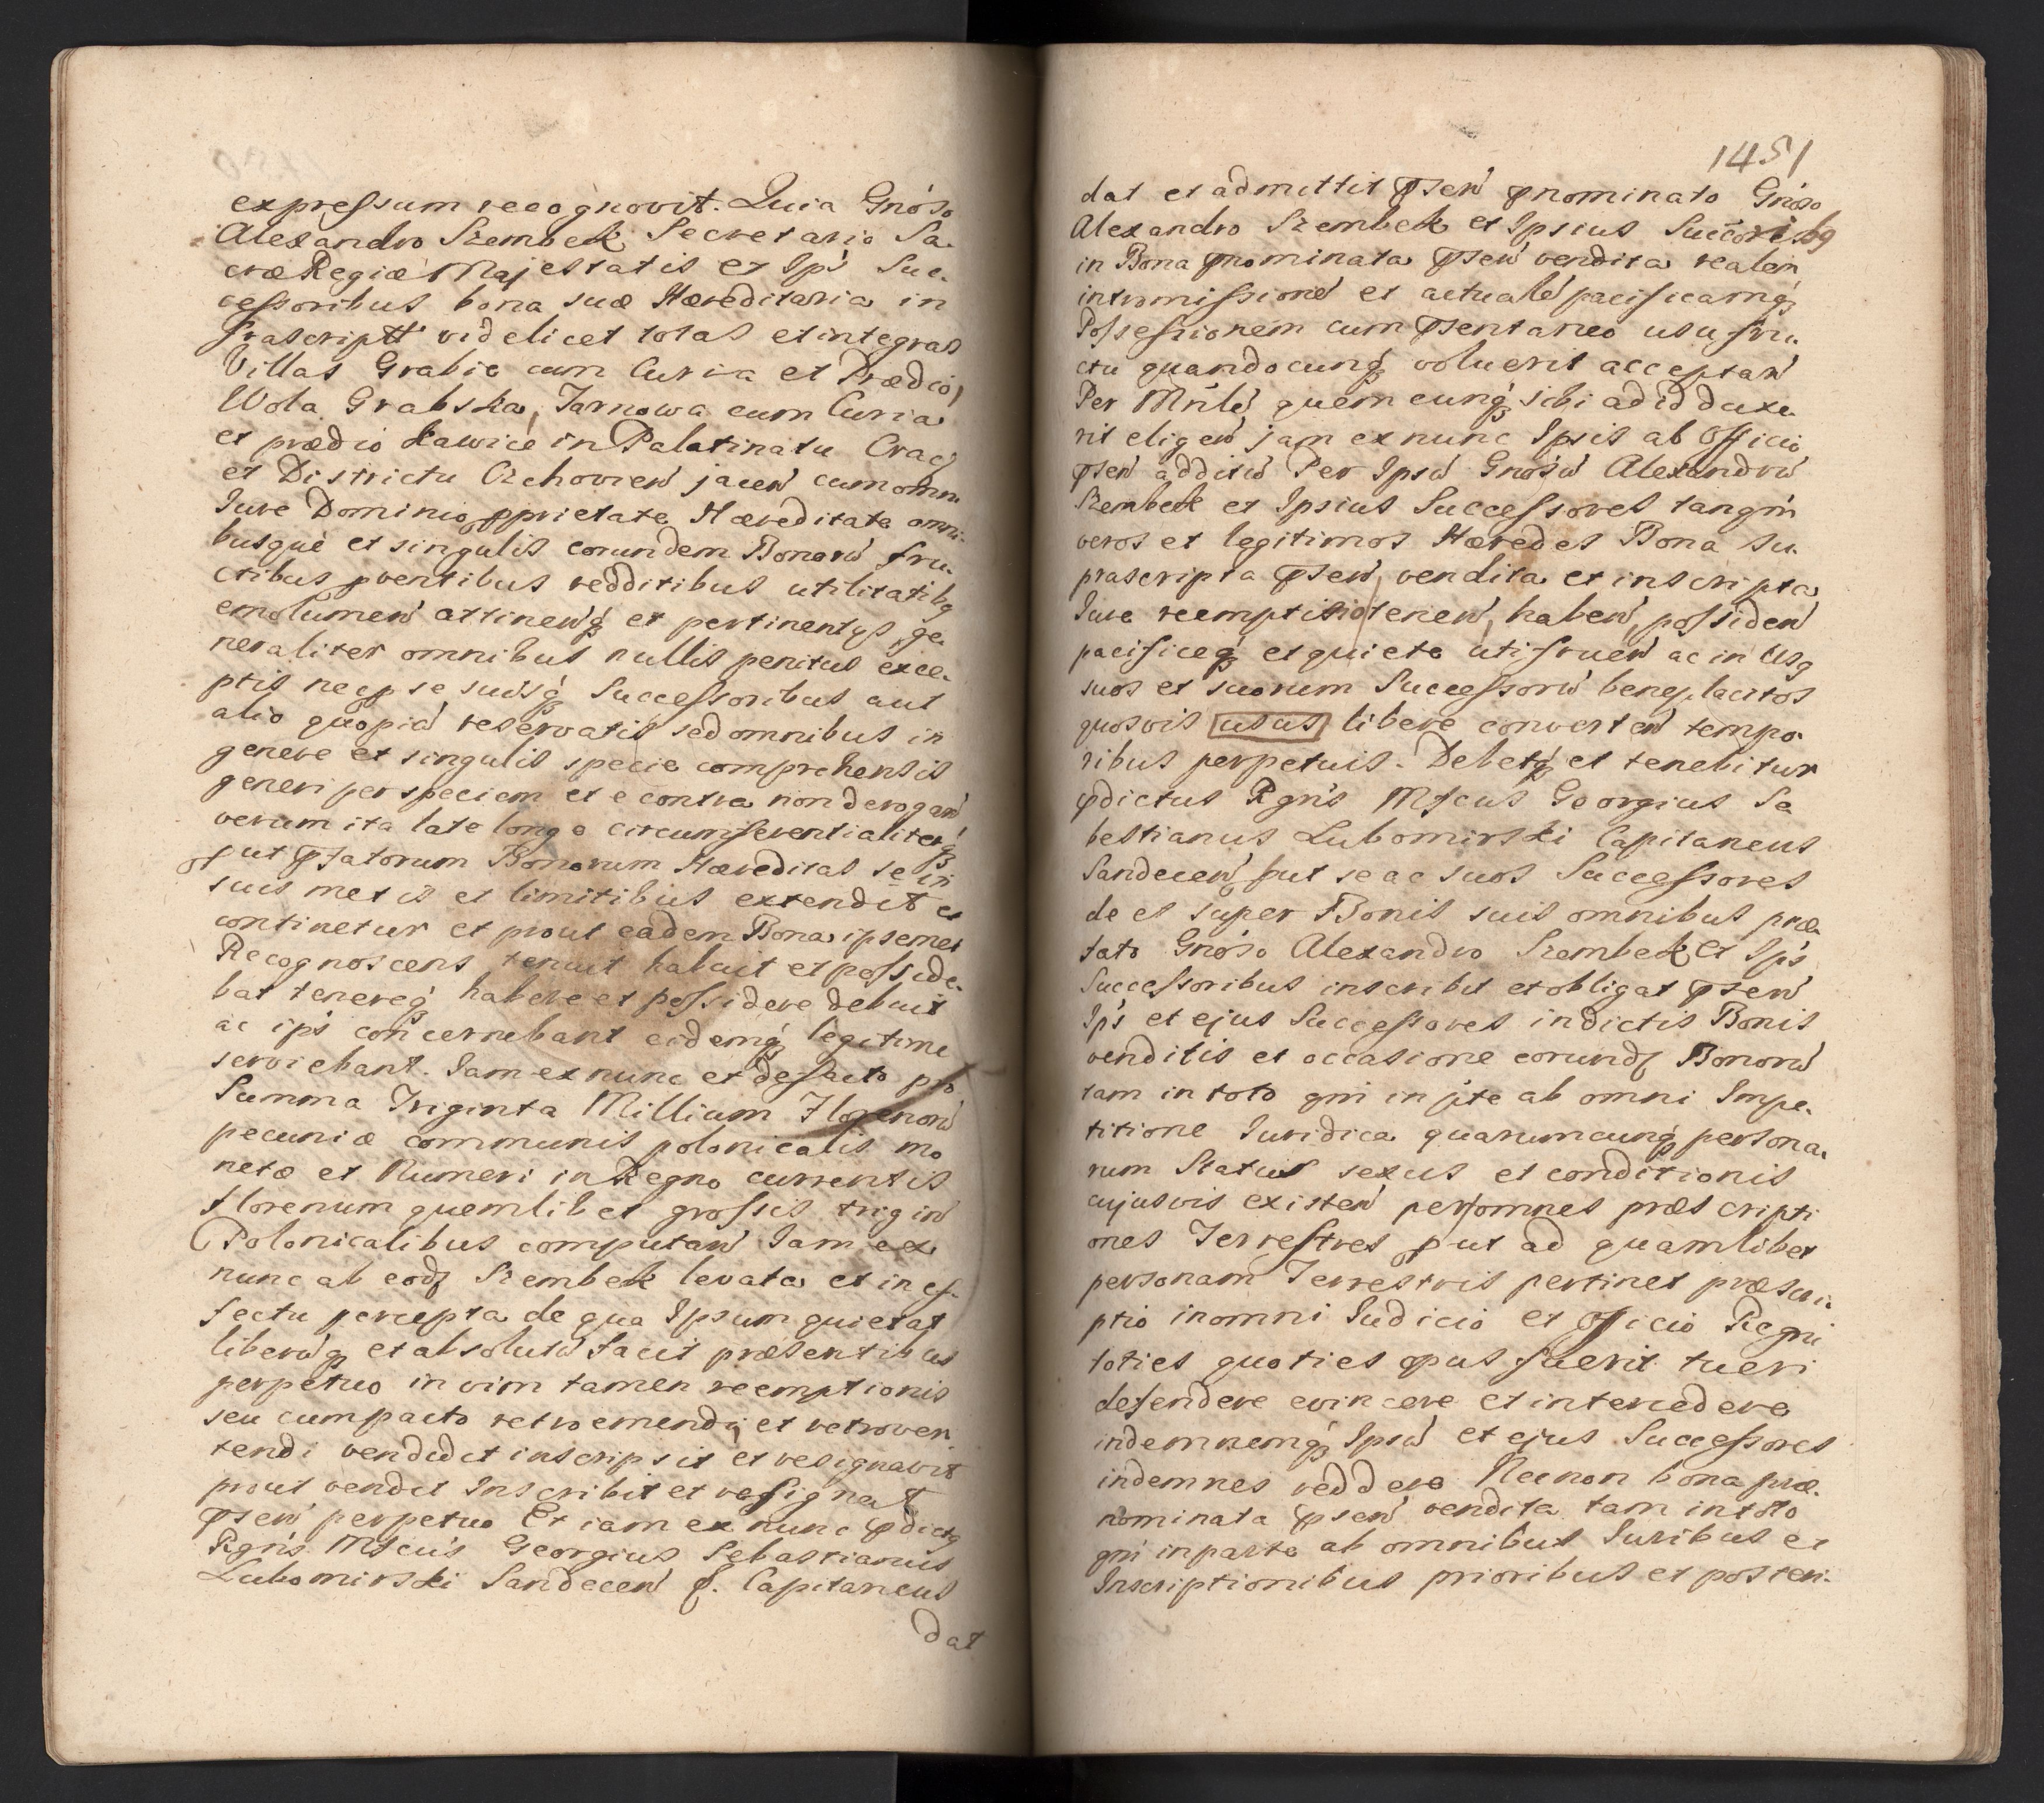 expressum recognovit. Quia Gnoso
Alexandro Szembek Secretario Sa.
cræ Regiæ Majestatis et Ips Suc.
cessoribus bona sua Hæreditaria in
frascriptt videlicet totas et integras
Villas Grabie cum Curia et Prædio,
Wola Grabska, Tarnowa cum Curia
et prædio Ławice in Palatinatu Crac
et Districtu Cchovien jacen cum omni
Iure Dominio pprietate Hæreditate omni.
busque et singulis eorundem Bonorū fru.
ctibus pventibus redditibus utilitatibq
emolumen attinenq et pertinentys ge.
neraliter omnibus nullis penitus exce.
ptis nec p se suisq Successoribus aut
alio quopiā reservatis sed omnibus in
genere et singulis specie comprehensis
generi per speciem et e contra non derogan
verum ita late longe circumferentialiterq
put pfatorum Bonorum Hæreditas se in
suis metis et limitibus extendit et
continetur et prout eadem Bona ipsemet
Recognoscens tenuit habuit et posside.
bat tenereq habere et possidere debuit
ac ips concernebant eidemq legitime
serviebant. Iam ex nunc et de facto pro
Summa Triginta Millium Florenorū
pecuniæ communis polonicalis mo
netæ et Numeri in Regno currentis
florenum quemlibet grossis trigin
Polonicalibus computan Iam ex
nunc ab eodz Szembek levata et in ef.
fectu percepta de qua Ipsum quietat
liberūq et absolutū facit præsentibus
perpetuo in vim tamen reemptionis
seu cum pacto retroemendi et retroven
tendi vendidit inscripsit et resignavit
prout vendit Inscribit et resignat
psen perpetuo Et iam ex nunc pdictq
Rgns Mfcus Georgius Sebastianus
Lubomirski Sandecen f. Capitaneus
dat
1451
dat et admittit psen pnominato Gnoso
Alexandro Szembek et Ipsius Succoribq
in Bona pnominata psen vendita realem
intromissionē et actualē pacificamq
Possessionem cum psentaneo usu fru.
ctu quandocunq voluerit acceptan
Per Mnlē quemcunq sibi ad id duxe
rit eligen jam ex nunc Ipsis ab Officio
psen additū Per Ipsū Gnosū Alexandrū
Szembek et Ipsius Successores tanqm
veros et legitimos Hæredes Bona su.
prascripta psen vendita et inscripta
Iure reemptitio tenen, haben, possiden
pacificeq et quiete utifruen ac in Usq
suos et suorum Successorū beneplacitos
quosvis usus libere converten tempo.
ribus perpetuis. Debetq et tenebitur
pdictus Rgns Mfcus Georgius Se
bestianus Lubomirski Capitaneus
Sandecen put se ac suos Successores
de et super Bonis suis omnibus præ.
fato Gnoso Alexandro Szembek et Ips
Successoribus inscribit et obligat psen
Ips et ejus Successores in dictis Bonis
venditis et occasione eorundz Bonorū
tam in toto qm in pte ab omni Impe.
titione Iuridica quarumcunq persona.
rum Status sexus et conditionis
cujusvis existen per omnes præscripti
ones Terrestres put ad quamlibet
personam Terrestris pertinet præscri.
ptio in omni Iudicio et officio Regni
toties quoties opus fuerit tueri
defendere evincere et intercedere
indemnemq Ipsū et ejus Successores
indemnes reddere Necnon bona præ.
nominata psen vendita tam in toto
qm in parte ab omnibus Iuribus et
Inscriptionibus prioribus et posteri.